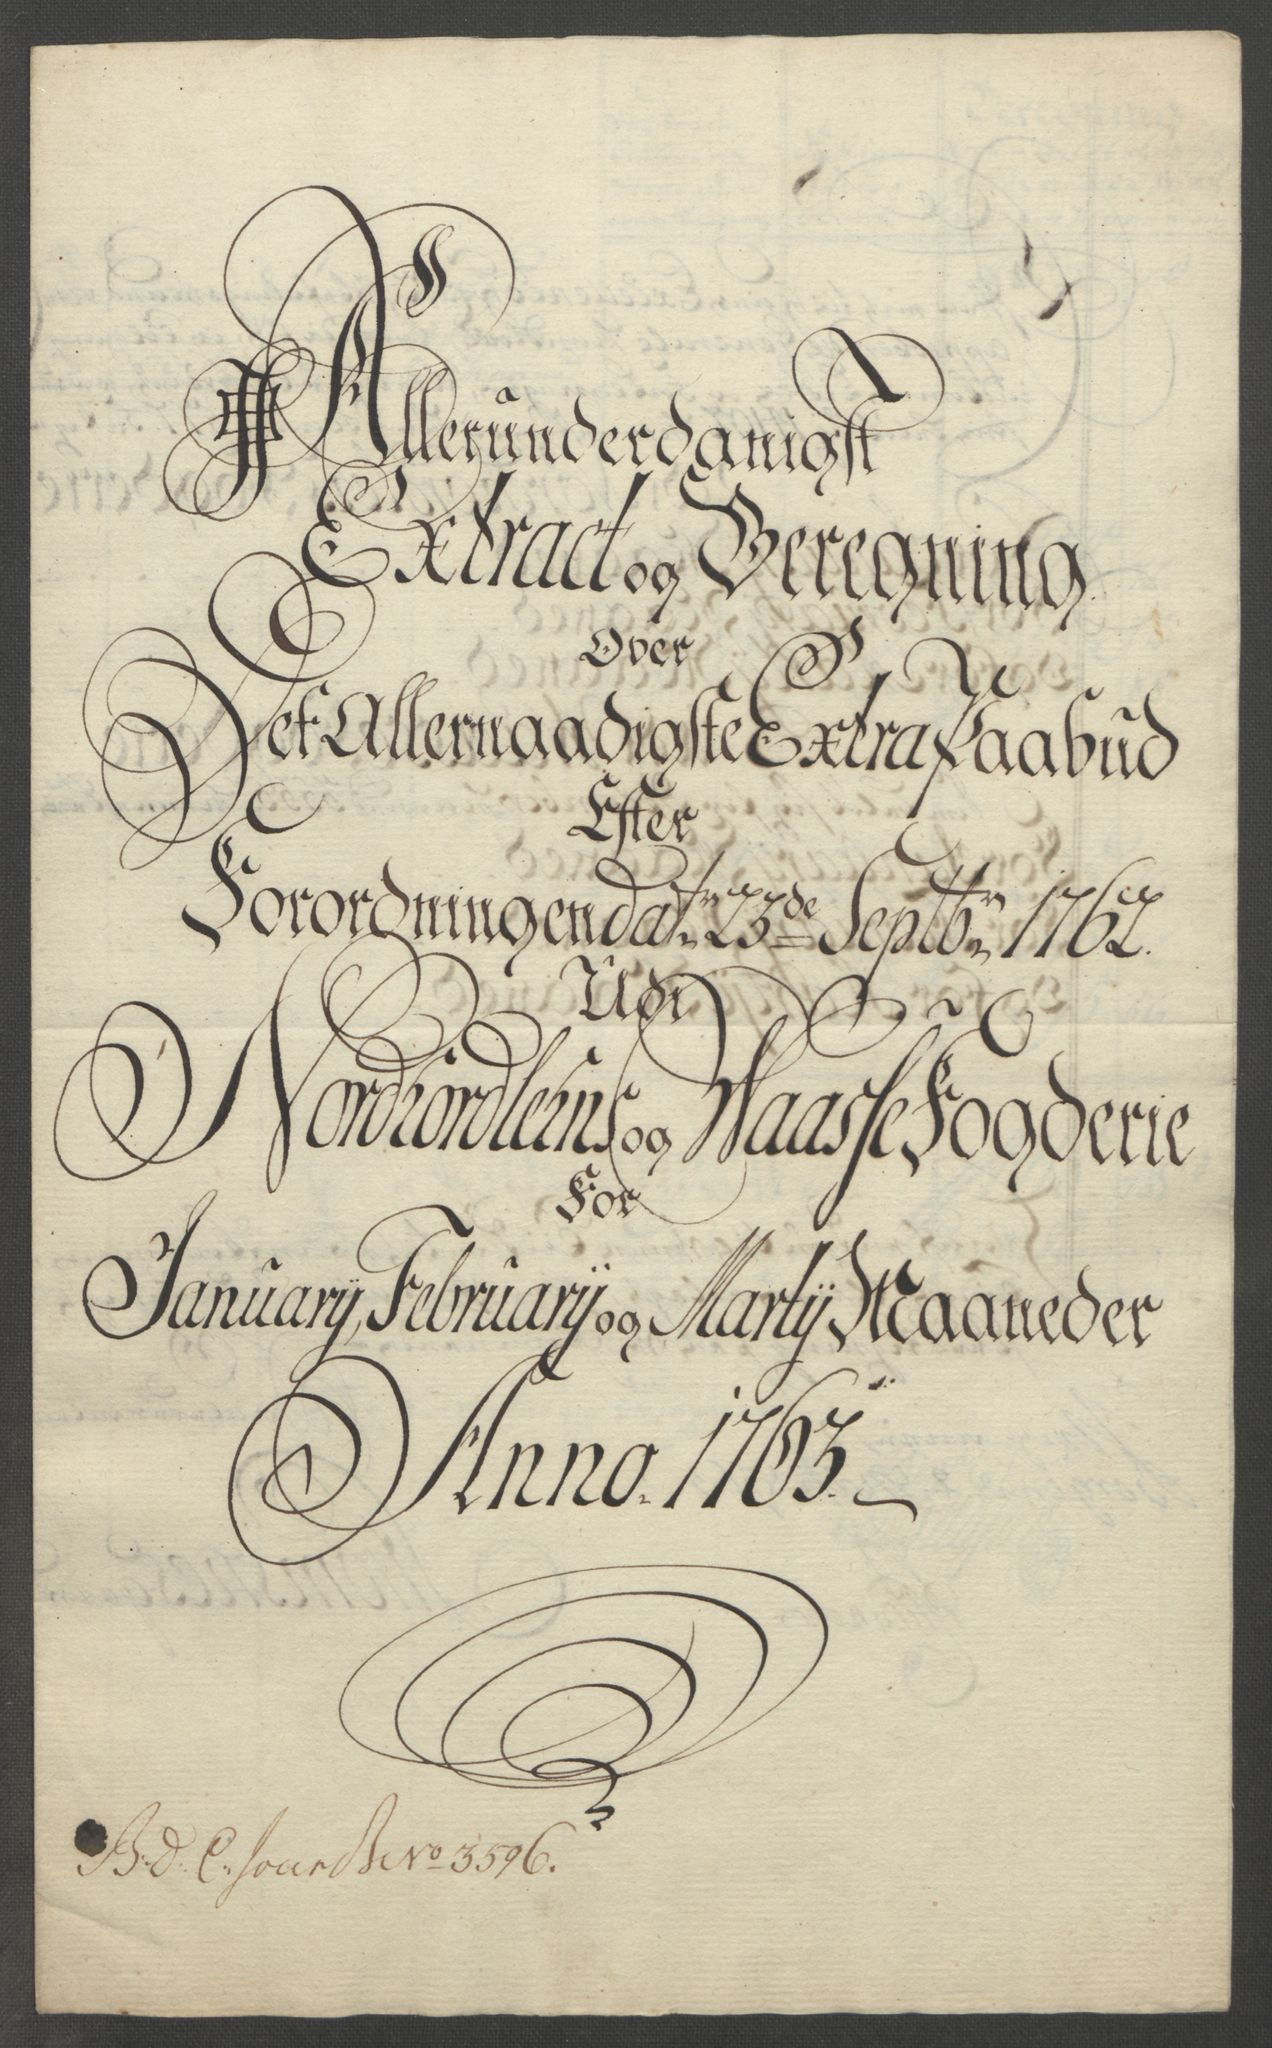 Allerunderdanigst
Extract og Beregning
Over
Det Allernaadigste Extra Paabud
Efter
Forordningen dat: 23de Septbr 1762.
Udi
Nordhordlehns og Waasse Fogderie
For
January, February og Marty Maaneder
Anno. 1763.
No 3596.